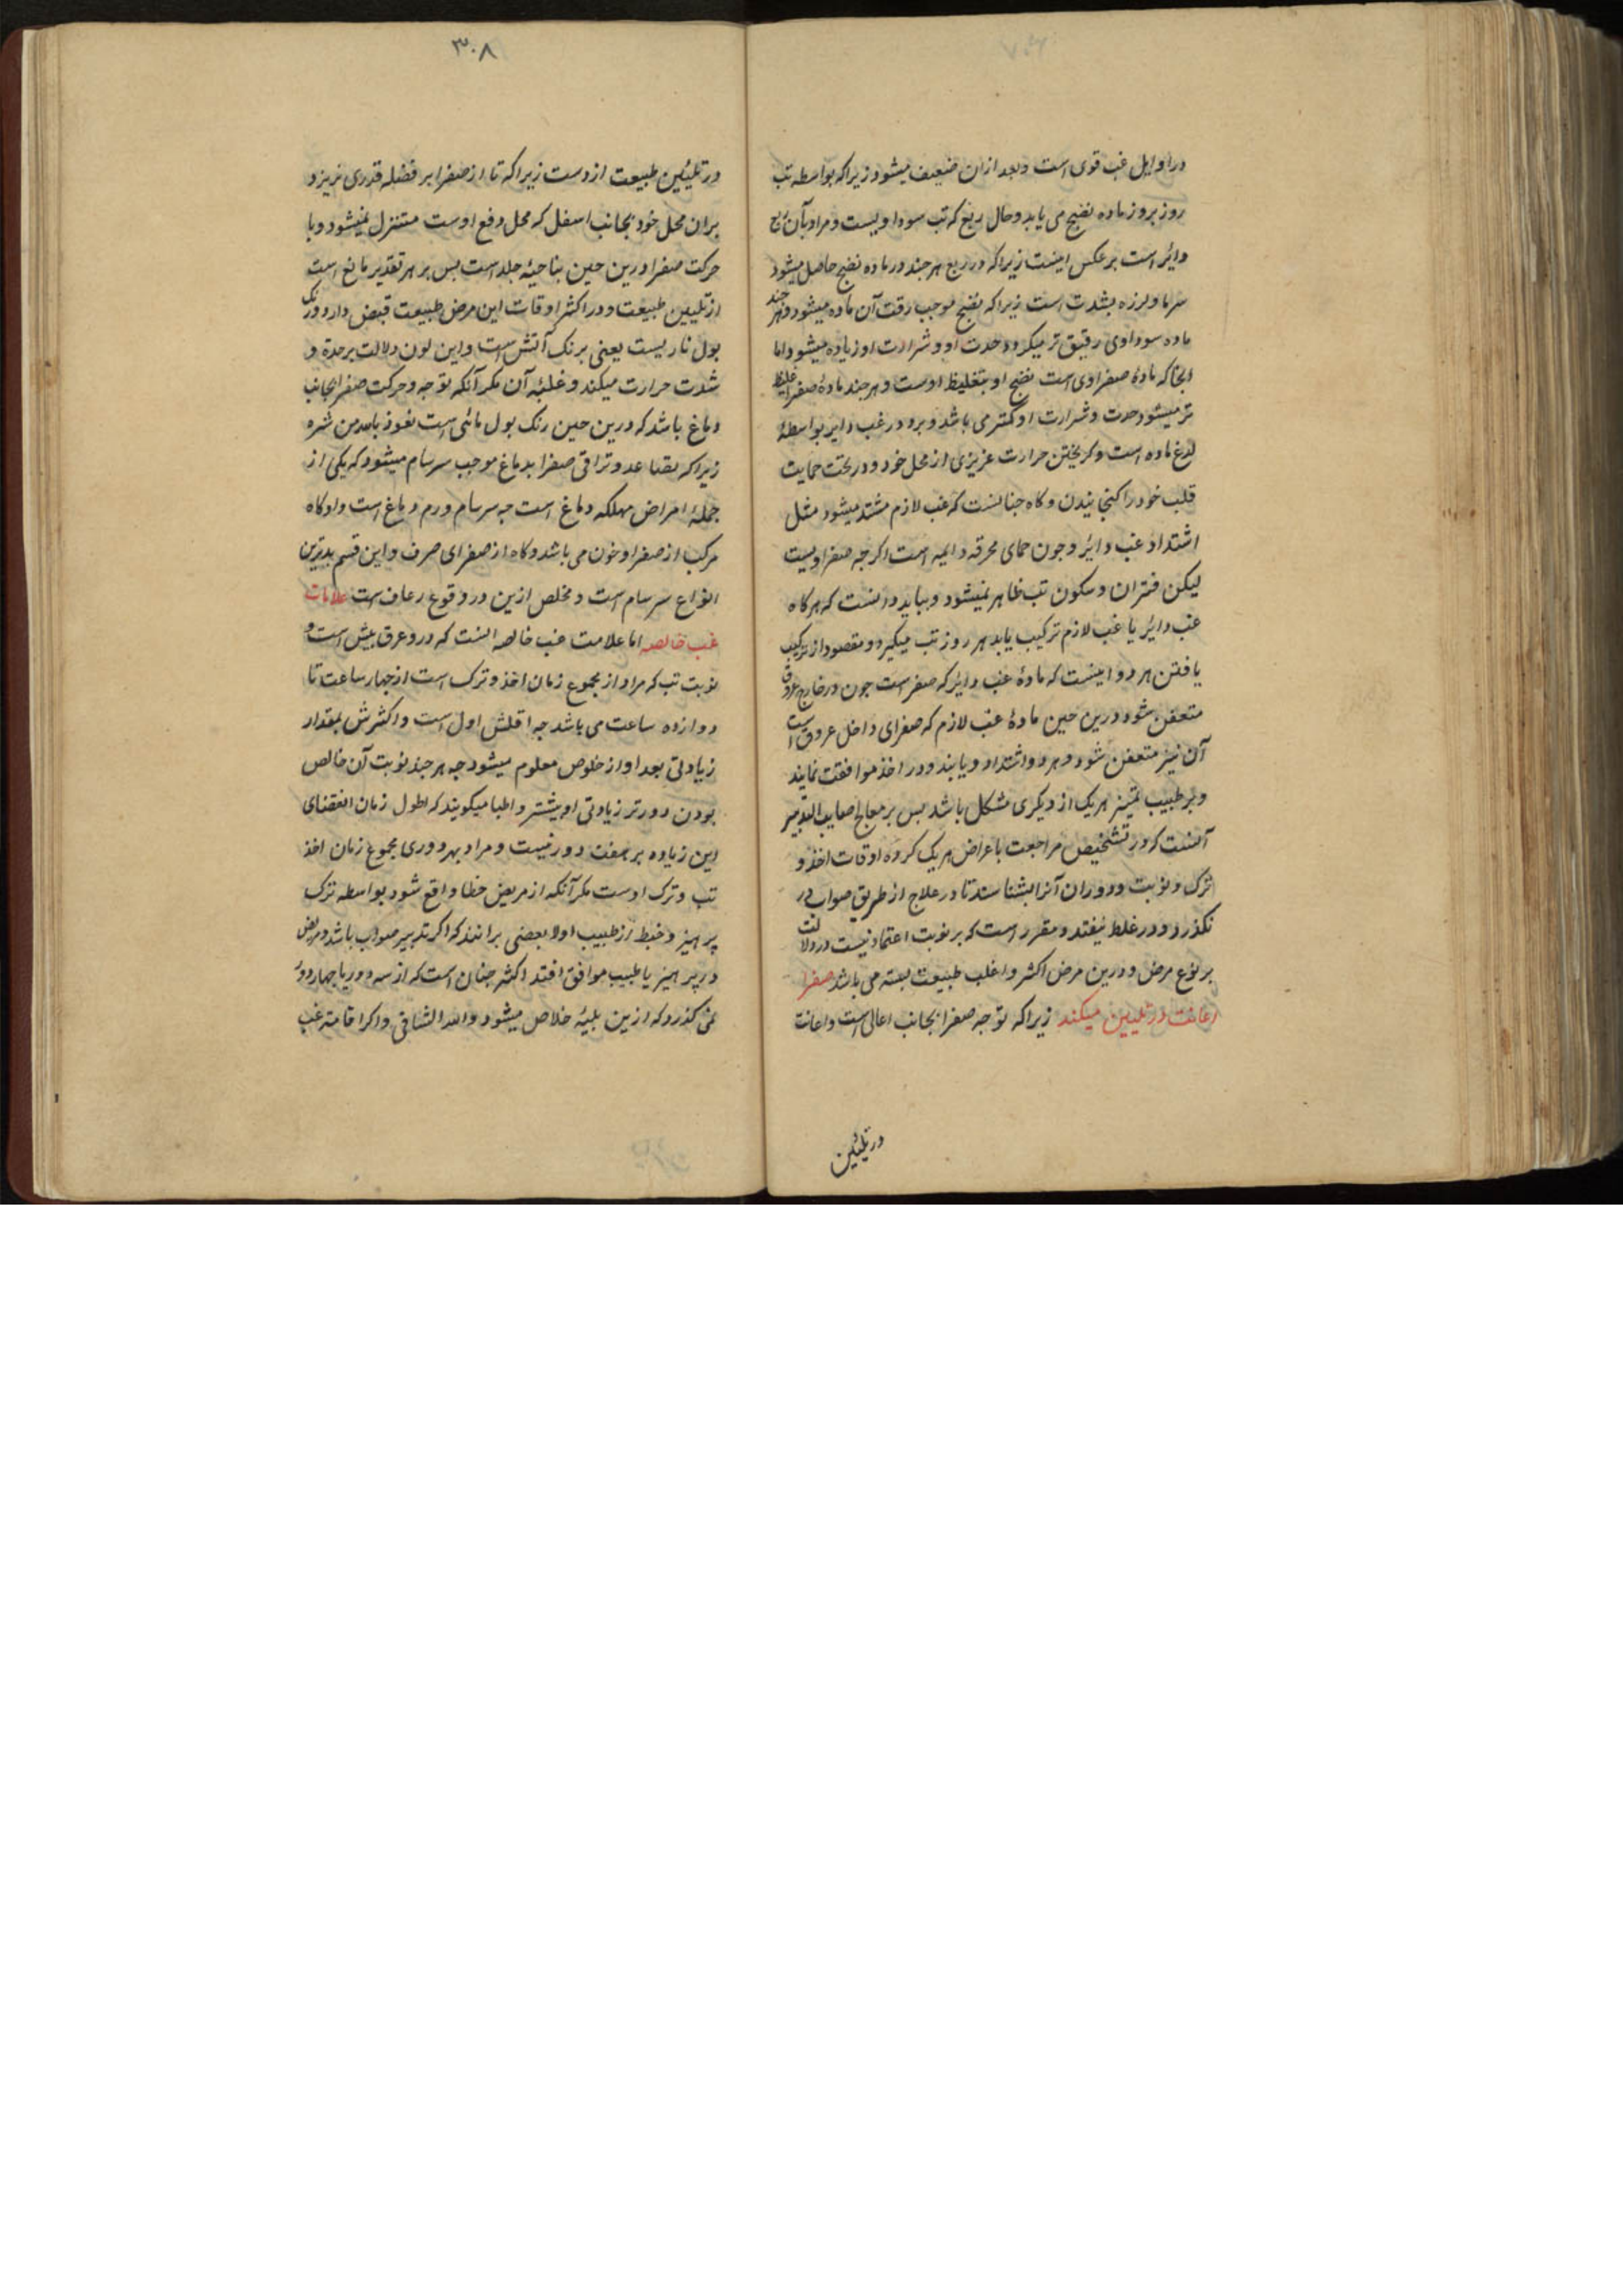 در اوایل غب قوی است و بعد از ان ضعیف میشود زیرا که بواسطه تب
روز بروز ماده نضج می یابد و حال ربع که تب سوداویست و مراد بآن ربع
دائر است بر عکس اینست زیرا که در ربع هر جند در ماده نضج حاصل میشود
سرما و لرزه بشدت است زیرا که نضج موجب رقت آن ماده میشود و هر جند
ماده سوداوی رقیق تر میکردد حدت او و شرارت او زیاده میشود اما
انجا که مادهٔ صفراوی است نضج او بتغلیظ اوست و هر جند مادهٔ صفرا غلیظ
تر میشود حدت و شرارت او کمتر می باشد و برد در غب دایر بواسطهٔ
لدغ ماده است و کریختن حرارت غریزی از محل خود و در تحت حمایت
قلب خود را کنجانیدن و کاه جنانست که غب لازم مشتد میشود مثل
اشتداد غب دائر و جون حمای محرقه دایمه است اکرجه صفراویست
لیکن فتران و سکون تب ظاهر نمیشود و بباید دانست که هر کاه
غب دائر با غب لازم ترکیب یابد هر روز تب میکیرد و مقصود از ترکیب
یافتن هر دو اینست که مادهٔ غب دائر که صفراست جون در خارج عروق
متعفن شود درین حین مادهٔ غب لازم که صفرای داخل عروق است
آن نیز متعفن شود و هر دو اشتداد و یابند و در اخذ موافقت نمایند
و بر طبیب تمیز هر یک از دیکری مشکل باشد بس بر معالج صایب التدبیر
آنست که در تشخیص مراجعت باعراض هر یک کرده اوقات اخذ و
ترک و نوبت و دوران آنرا بشناسند تا در علاج از طریق صواب در
نکذرد و در غلط نیفتد و مقرر است که بر نوبت اعتماد نیست در دلالت
بر نوع مرض و درین مرض اکثر و اغلب طبیعت بسته می باشد صفرا
اعانت در تلیین میکند زیرا که توجه صفرا بجانب اعالی است و اعانت
در تلیین
۳۰۸
در تلیین طبیعت ازوست زیرا که تا از صفرا بر فضله قدری نریزد
بران محل خود بجانب اسفل که محل دفع اوست متنزل نمیشود و با
حرکت صفرا درین حین بناحیهٔ جلد است بس بر هر تقدیر مانع است
از تلیین طبیعت و در اکثر اوقات این مرض طبیعت قبض دارد و رنک
بول ناریست یعنی برنک آتش است و این لون دلالت بر حدة و
شدت حرارت میکند و غلبهٔ آن مکر آنکه توجه و حرکت صفرا بجانب
دماغ باشد که درین حین رنک بول مائی است نعوذ بالله من شره
زیرا که تصاعد و تراقی صفرا بدماغ موجب سرسام میشود که یکی از
جملهٔ امراض مهلکه دماغ است جه سرسام ورم دماغ است و او کاه
مرکب از صفرا و خون می باشد و کاه از صفرای صرف و این قسم بدترین
انواع سرسام است و مخلص ازین در وقوع رعاف است علامات
غب خالصه اما علامت غب خالصه انست که درو عرق بیش است و
نوبت تب که مراد از مجموع زمان اخذ و ترک است از جهار ساعت تا
دوازده ساعت می باشد جه اقلش اول است و اکثرش بمقدار
زیادتی بعد او از خلوص معلوم میشود جه هر جند نوبت آن خالص
بودن دورتر زیادتی او بیشتر و اطبا میکویند که اطول زمان انقضای
این زیاده بر هفت دور نیست و مراد بهر دوری مجموع زمان اخذ
تب و ترک اوست مکر آنکه از مریض خطا واقع شود بواسطه ترک
پرهیز و خبط از طبیب اولا بعضی برانند که اکر تدبیر صواب باشد و مریض
در پرهیز با طبیب موافق افتد اکثر جنان است که از سه دور یا جهار دور
نمی کذرد که ازین بلیهٔ خلاص میشود والله الشافی و اکر اقامتهٔ غب